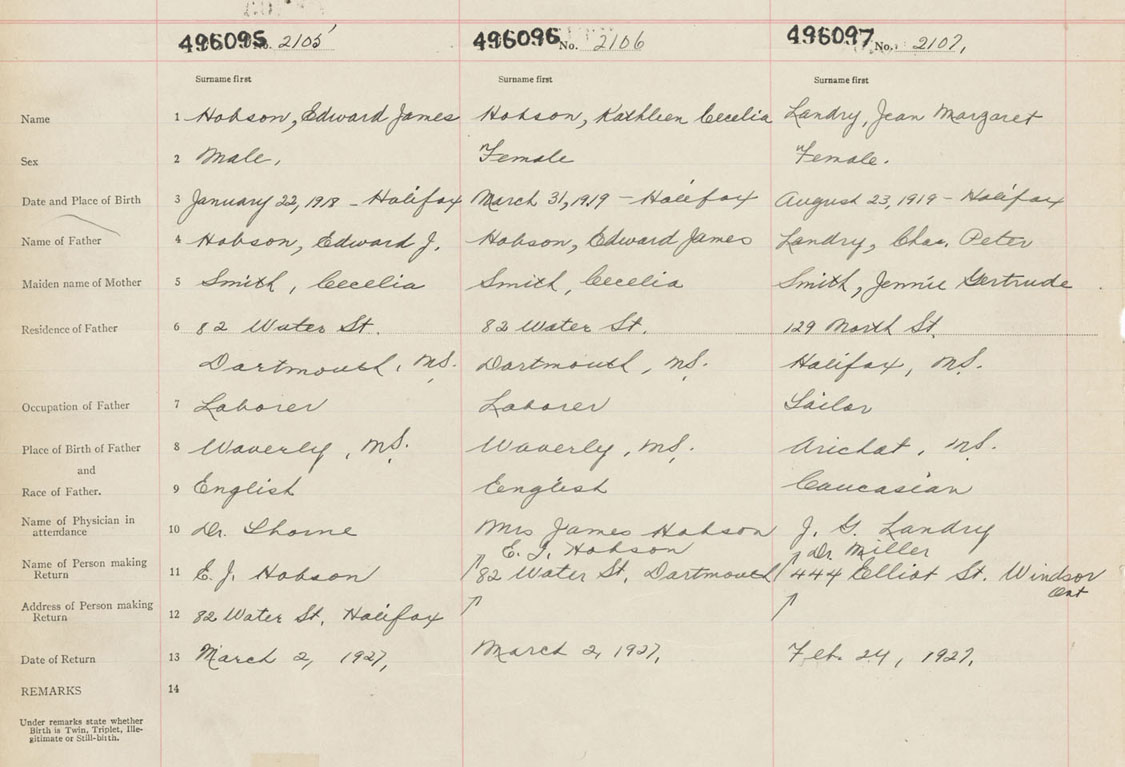 496095 No. 2105 496096 No. 2106 496097 No. 2107,
Surname first Surname first Surname first
Name 1 Hobson, Edward James Hobson, Kathleen Cecelia Landry, Jean Margaret
Sex 2 Male, Female Female.
Date and Place of Birth 3 January 22, 1918 - Halifax March 31, 1919 - Halifax August 23, 1919 - Halifax
Name of Father 4 Hobson, Edward J. Hobson, Edward James Landry, Chas. Peter
Maiden name of Mother 5 Smith, Cecelia Smith, Cecelia Smith, Jennie Gertrude
Residence of Father 6 82 Water St. 82 Water St. 129 North St.
Dartmouth, N.S. Dartmouth, N.S. Halifax, N.S.
Occupation of Father 7 Laborer Laborer Sailor
Place of Birth of Father 8 Waverly, N.S. Waverly, N.S. Arichat, N.S.
and
Race of Father. 9 English English Caucasian
Name of Physician in
attendance 10 Dr. Thorne Mrs James Hobson J. G. Landry
E. J. Hobson Dr. Miller
Name of Person making
Return 11 E. J. Hobson 82 Water St, Dartmouth 444 Elliot St. Windsor
Ont
Address of Person making
Return 12 82 Water St, Halifax
Date of Return 13 March 2, 1927, March 2, 1927, Feb. 24, 1927,
REMARKS 14
Under remarks state whether
Birth is Twin, Triplet, Ille-
gitimate or Still-birth.